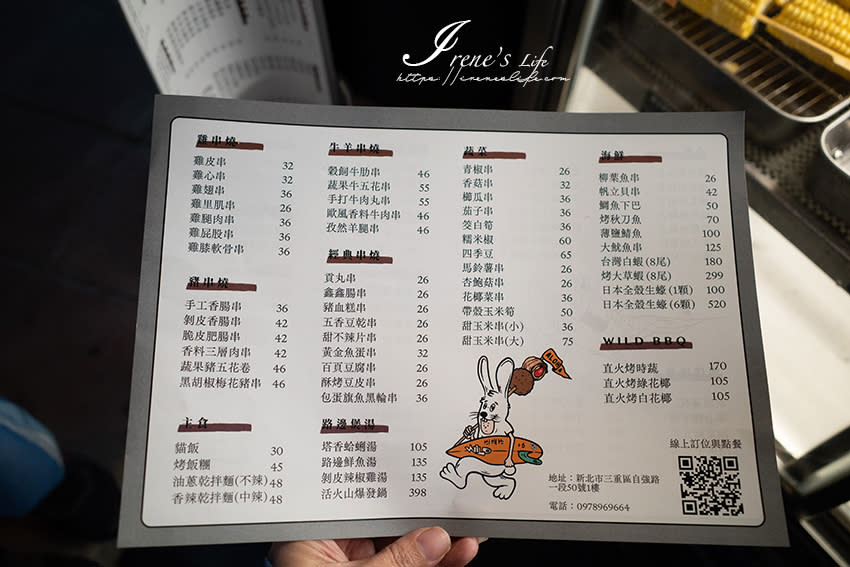 Irene's Life
https://ireneslife.com
雞串燒
雞皮串 32
雞心串 32
雞翅串 36
雞里肌串 26
雞腿肉串 36
雞屁股串 36
雞膝軟骨串 36
豬串燒
手工香腸串 36
剝皮香腸串 42
脆皮肥腸串 42
香料三層肉串 42
蔬果豬五花卷 46
黑胡椒梅花豬串 46
主食
貓飯 30
烤飯糰 45
油蔥乾拌麵(不辣) 48
香辣乾拌麵(中辣) 48
牛羊串燒
穀飼牛肋串 46
蔬果牛五花串 55
手打牛肉丸串 55
歐風香料牛肉串 46
孜然羊腿串 46
經典串燒
貢丸串 26
鑫鑫腸串 26
豬血糕串 26
五香豆乾串 26
甜不辣片串 26
黃金魚蛋串 32
百頁豆腐串 26
酥烤豆皮串 26
包蛋旗魚黑輪串 36
路邊煲湯
塔香蛤蜊湯 105
路邊鮮魚湯 135
剝皮辣椒雞湯 135
活火山爆發鍋 398
蔬菜
青椒串 26
香菇串 32
櫛瓜串 36
茄子串 36
筊白筍 36
糯米椒 60
四季豆 65
馬鈴薯串 26
杏鮑菇串 26
花椰菜串 36
帶殼玉米筍 50
甜玉米串(小) 36
甜玉米串(大) 75
海鮮
柳葉魚串 26
帆立貝串 42
鯛魚下巴 50
烤秋刀魚 70
薄鹽鯖魚 100
大魷魚串 125
台灣白蝦(8尾) 180
烤大草蝦(8尾) 299
日本全殼生蠔(1顆) 100
日本全殼生蠔(6顆) 520
WILD BBQ
直火烤時蔬 170
直火烤綠花椰 105
直火烤白花椰 105
ALOHA
線上訂位與點餐
地址：新北市三重區自強路
一段50號1樓
電話：0978969664